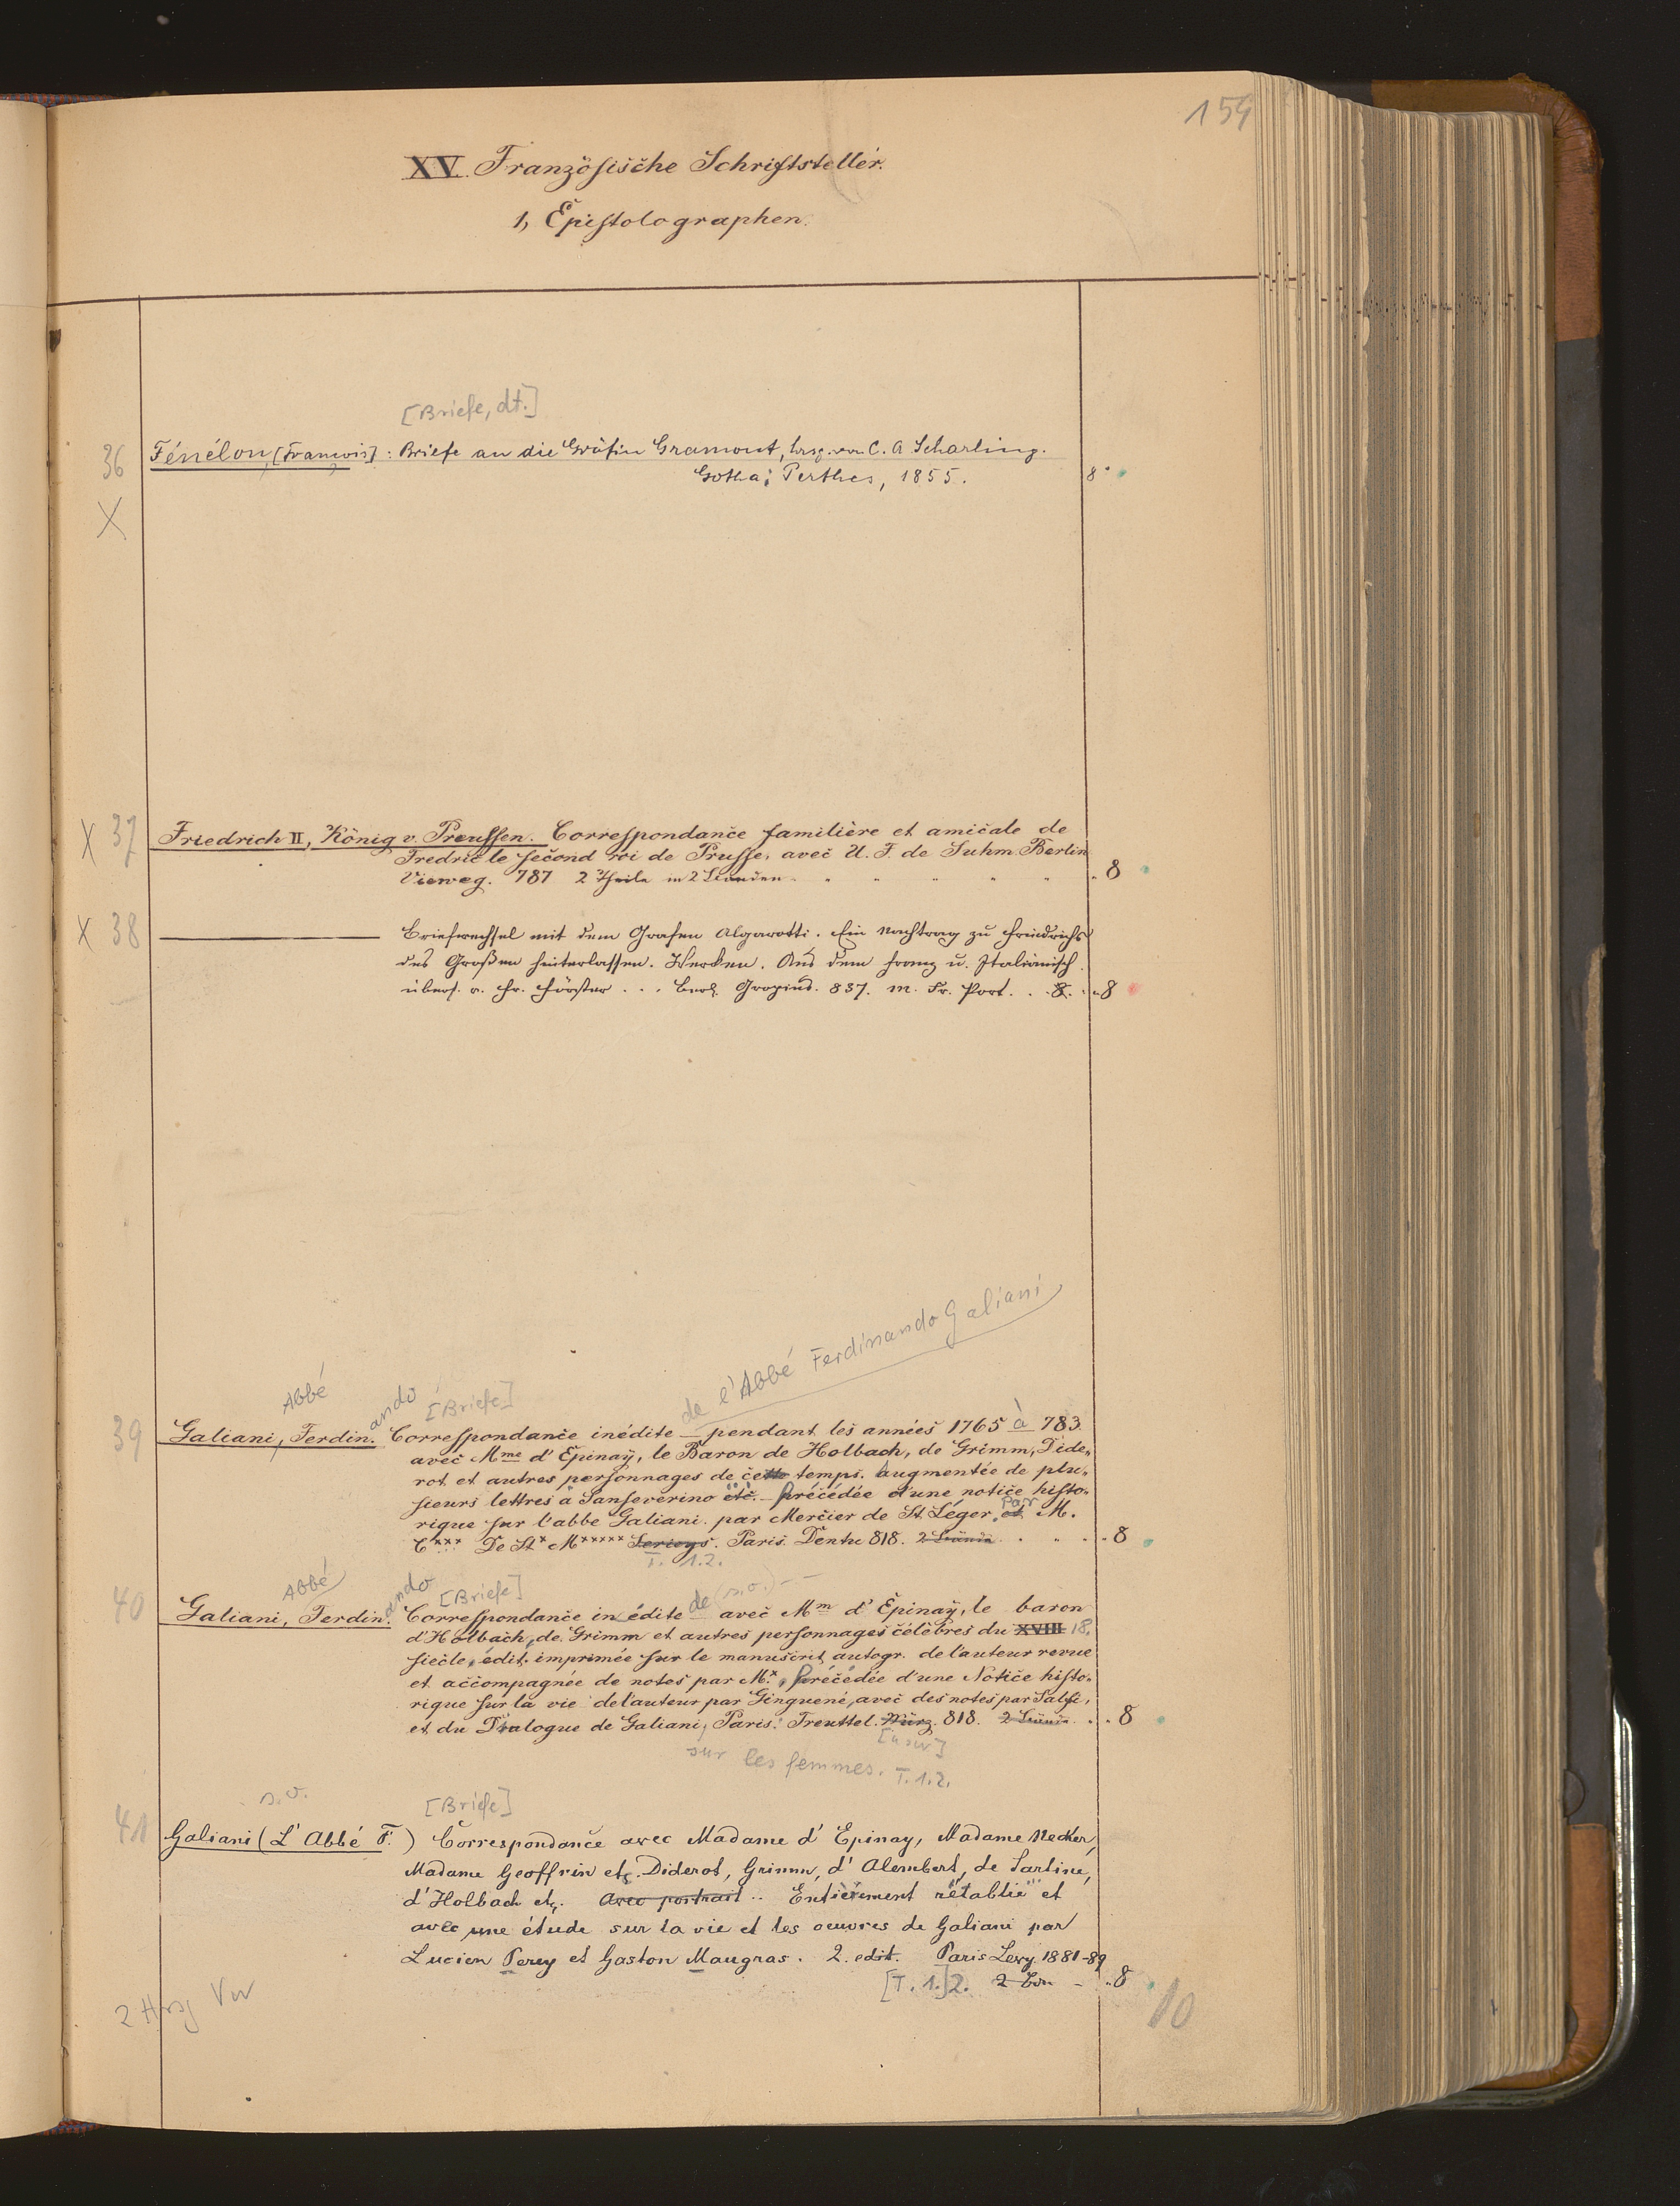 154
XV. Französische Schriftsteller.
1, Epistolographen.
[Briefe, dt.]
36 Fénélon, [François]: Briefe an die Gräfin Gramont, hrsg. von C. A. Scharling.
Gotha: Perthes, 1855. 8°
X
X 37 Friedrich II, König v. Preussen. Correspondance familière et amicale de
Fredric le second roi de Prusse, avec U. F. de Suhm. Berlin
Vieweg. 787 2 Theile in 2 Bänden. 8
X 38 Briefwechsel mit dem Grafen Algarotti. Ein Nachtrag zu Friedrichs
des Großen hinterlassen. Werken. Aus dem Franz u. Italiänisch.
übers. v. Fr. Förster . . . Berl. Gropius. 837. m. Fr. Port. . . 8. 8
de l'Abbé Ferdinando Galiani
Abbé ando [Briefe]
39 Galiani, Ferdin. Correspondance inédite pendant les années 1765 à 783.
avec Mme d'Epinaÿ, le Baron de Holbach, de Grimm, Dide-
rot et autres personnages de cette temps. augmentée de plu-
sieurs lettres à Sanseverino etc. précédée d'une notice histo-
rique sur l'abbe Galiani par Mercier de St. Léger, et par M.
C*** De St* M***** Serieys. Paris. Dentu 818. 2 Bände 8
T. 1.2.
Abbé ando [Briefe] de (s.o.) --
40 Galiani, Ferdin. Correspondance inédite avec Mm d'Epinaÿ, le baron
d'Holbach, de Grimm et autres personnages célèbres du XVIII 18.
siècle, édit. imprimée sur le manuscrit autogr. de l'auteur revue
et accompagnée de notes par M.*, précédée d'une Notice histo-
rique sur la vie de l'auteur par Ginguené, avec des notes par Salfi,
et du Dialogue de Galiani, Paris: Treuttel. Würz. 818. 2 Bände. 8
[u. a.]
sur les femmes. T. 1.2.
s.o. [Briefe]
41 Galiani (L'Abbé F.) Correspondance avec Madame d'Epinay, Madame Necker,
Madame Geoffrin etc. Diderot, Grimm, d'Alembert, de Sartine,
d'Holbach etc. Avec portrait .. Entièrement rétablie et
avec une étude sur la vie et les oeuvres de Galiani par
Lucien Perey et Gaston Maugras. 2. edit. Paris Levy 1881-89
[T. 1.] 2. 2 Bde 8
2 Hrsg Vw
10